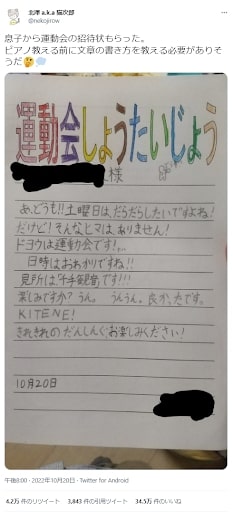 北澤 a.k.a 猫次郎
@nekojirow
息子から運動会の招待状もらった。
ピアノ教える前に文章の書き方を教える必要がありそうだ🤔💭
運動会しょうたいじょう
様
あ、どうも!!土曜日は、だらだらしたいですよね!
だけど!そんなヒマはありません!
ドヨウは運動会です!,..
日時はおわかりですね!!
見所は「千手観音」です!!!
楽しみですか?うん。うんうん。良か、たです。
KITENE!
きれきれのだんしんぐお楽しみください!
10月20日
午後8:00 · 2022年10月20日 · Twitter for Android
4.2万 件のリツイート 3,843 件の引用ツイート 34.5万 件のいいね